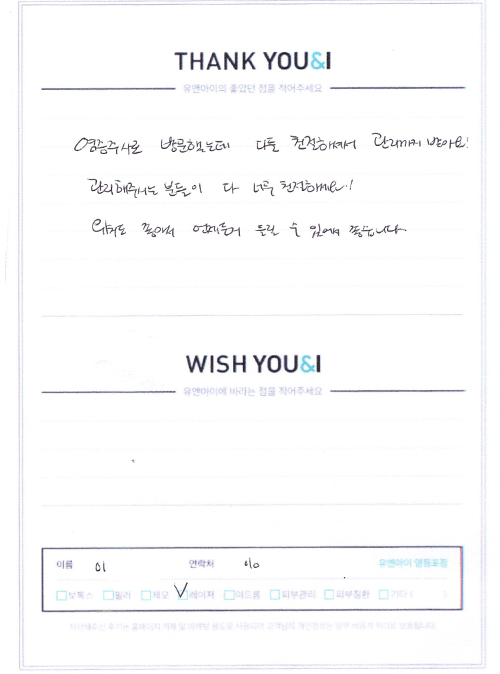 THANK YOU&I
유앤아이의 좋았던 점을 적어주세요
염증주사로 방문했는데 다들 친절하셔서 관리까지 받아요!
관리해주시는 분들이 다 너무 친절하세요!
위치도 좋아서 언제든지 들릴 수 있어서 좋습니다.
WISH YOU&I
유앤아이에 바라는 점을 적어주세요
이름 이 연락처 010 유앤아이 영등포점
보톡스 필러 제모 레이저 여드름 피부관리 피부질환 기타 ( )